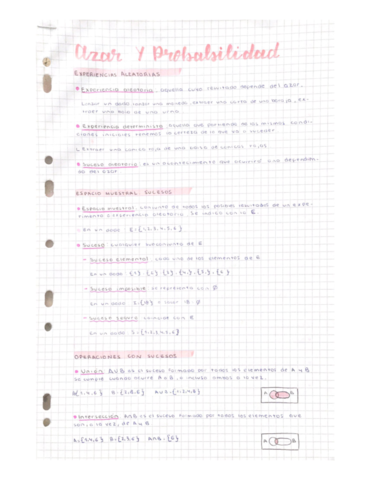 Azar y Probabilidad
EXPERIENCIAS ALEATORIAS
Experiencia aleatoria: aquella cuyo resultado depende del azar.
Lanzar un dado, lanzar una moneda, extraer una carta de una baraja, ex-
traer una bola de una
Experiencia determinista: aquella que partiendo de las mismas condi-
ciones iniciales tenemos la certeza de lo que va a suceder
Extraer una bola roja de una bolsa de bolas rojas
Suceso aleatorio: es un acontecimiento que ocurrirá o no dependien-
do del azar
ESPACIO MUESTRAL. SUCESOS
Espacio muestral: conjunto de todos los posibles resultados de un expe-
rimento o experiencia aleatoria. Se indica con la E
En un dado E={1,2,3,4,5,6}
Suceso: cualquier subconjunto de E
- Suceso elemental: cada uno de los elementos de E
En un dado {1} {2} {3} {4} {5} {6}
- Suceso imposible: se representa con Ø
En un dado
- Suceso seguro: coincide con E
En un dado S={1,2,3,4,5,6}
OPERACIONES CON SUCESOS
Unión: AUB es el suceso formado por todos los elementos de A y B
Se cumple cuando ocurre A o B, o ambos a la vez.
A B
Intersección: A∩B es el suceso formado por todos los elementos que
son, a la vez, de A y B
A={2,4,6} A∩B={6}
A B